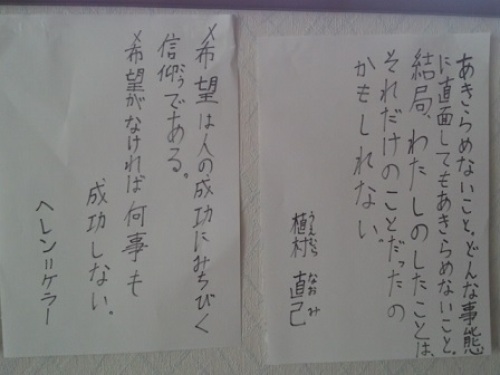 あきらめないこと。どんな事態
に直面してもあきらめないこと。
結局、わたしのしたことは、
それだけのことだったの
かもしれない。
うえむら なおみ
植村 直己
希望は人の成功にみちびく
信仰である。
希望がなければ何事も
成功しない。
ヘレン=ケラー